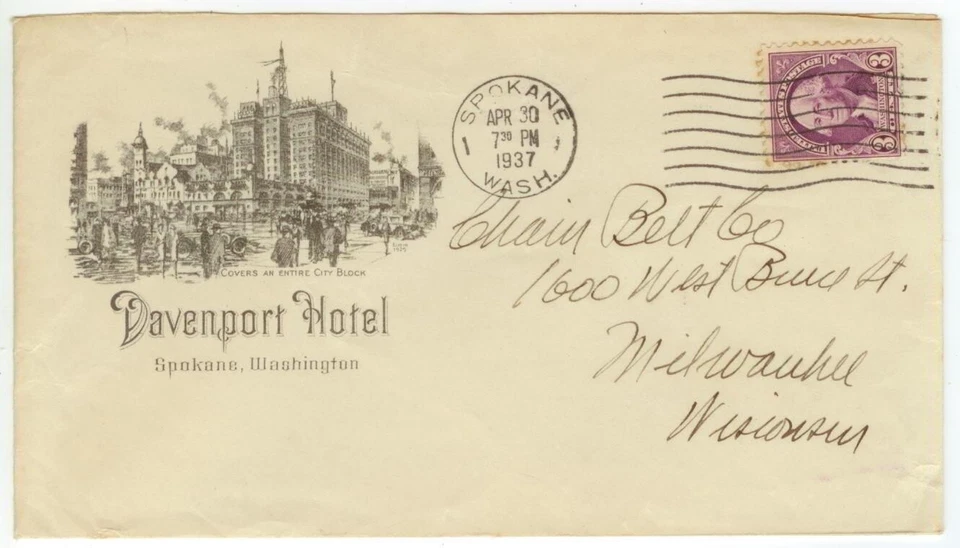 COVERS AN ENTIRE CITY BLOCK
Davenport Hotel
Spokane, Washington
SPOKANE
APR 30
7 30 PM
1937
WASH.
1
3
3
Chain Belt Co
1600 West Bruce St.
Milwaukee
Wisconsin